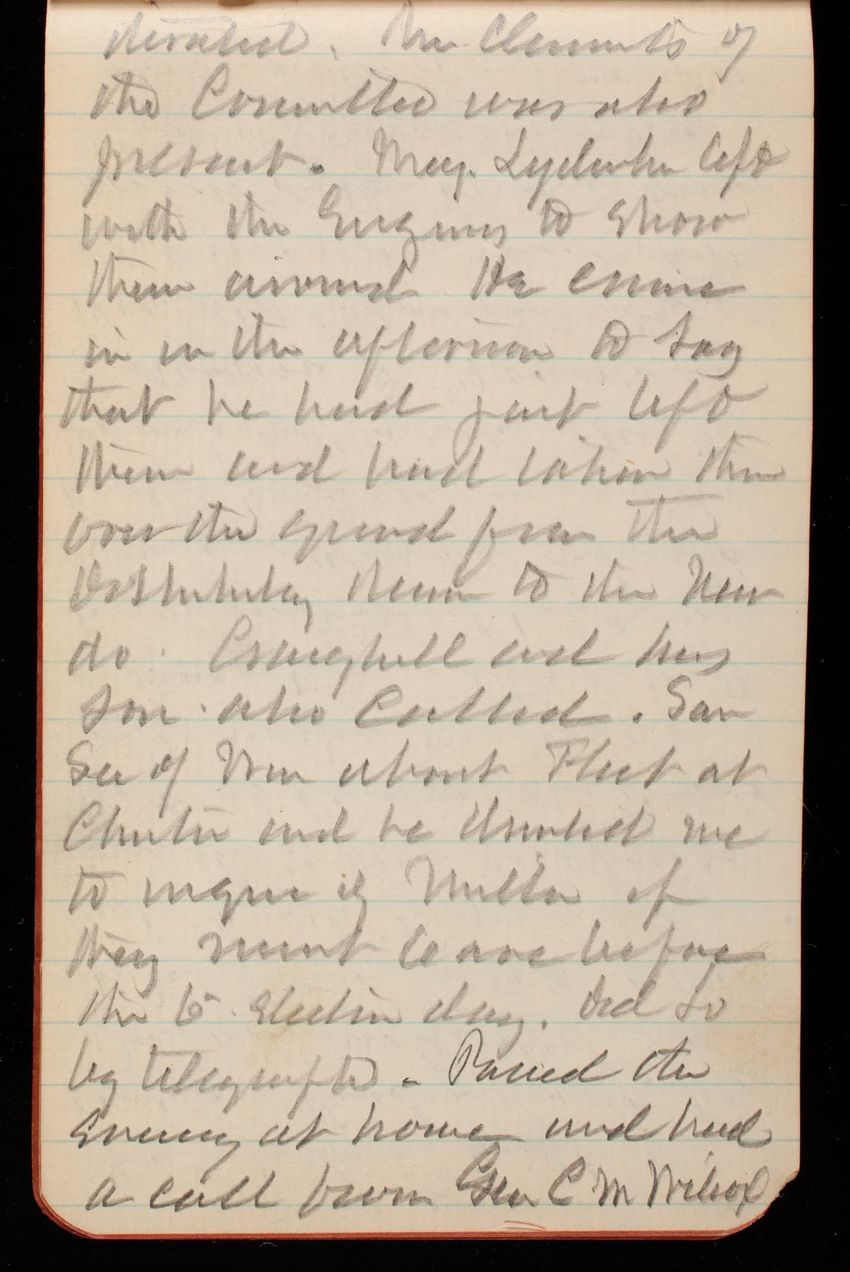 Mr Clements of
the Committee was also
present. Maj. Lydecker left
with the Engineers to show
them around He came
in in the afternoon to say
that he had just left
them and had taken them
over the ground from the
Distributing Reser to the New
do. Craighill and his
son also called. Saw
Sec of War about Fleet at
and he directed me
to inquire of Miller if
they must leave before
the 6" Election day. Did so
by telegraph. Passed the
evening at home and had
a call from Gen C M Wilcox